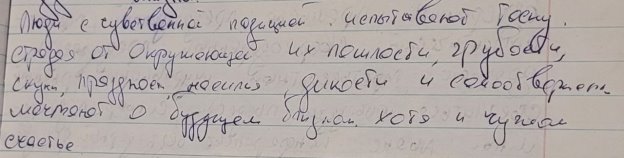 Люди с чувственной позицией испытывают тоску.
страдая от окружающей их пошлости, грубости,
скуки, праздности, насилия, дикости и самоотвержен
мечтают о будущем близком хотя и чужом
счастье